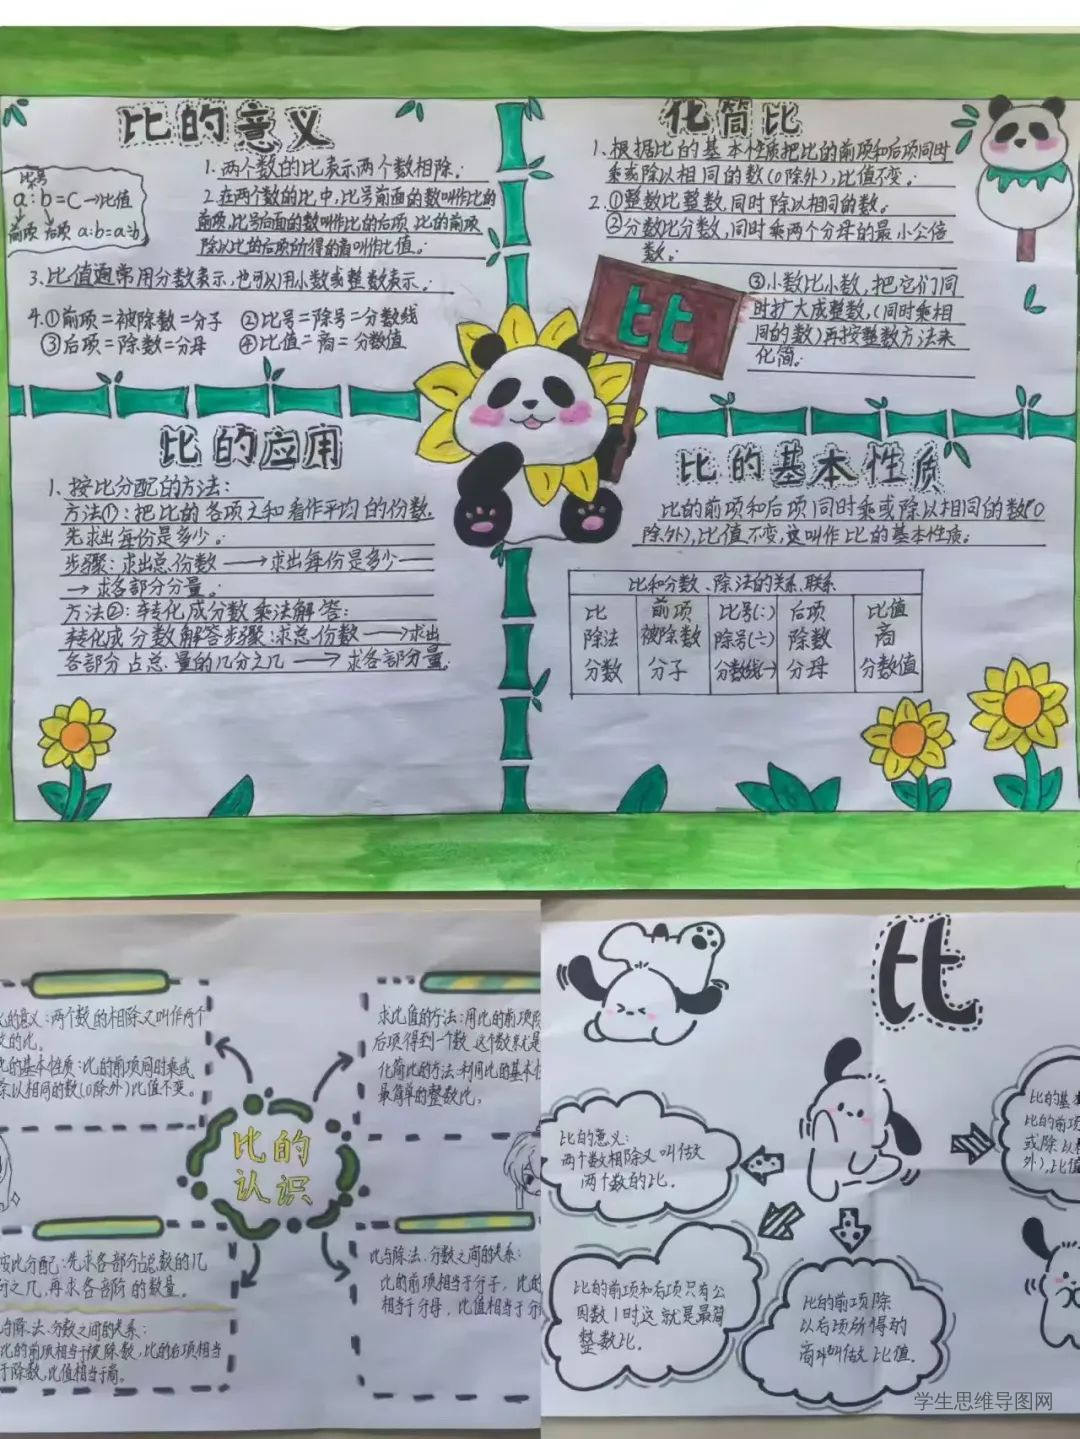 比的意义
比号
a:b=C→比值
前项 后项 a:b=a÷b
1.两个数的比表示两个数相除。
2.在两个数的比中,比号前面的数叫作比的
前项,比号后面的数叫作比的后项,比的前项
除以比的后项所得的商叫作比值。
3.比值通常用分数表示,也可以用小数或整数表示。
4.①前项=被除数=分子 ②比号=除号=分数线
③后项=除数=分母 ④比值=商=分数值
化简比
1.根据比的基本性质把比的前项和后项同时
乘或除以相同的数(0除外),比值不变。
2.①整数比整数,同时除以相同的数。
②分数比分数,同时乘两个分母的最小公倍
数。
③小数比小数,把它们同
时扩大成整数,(同时乘相
同的数)再按整数方法来
化简。
比
比的应用
1.按比分配的方法:
方法①:把比的各项之和看作平均的份数,
先求出每份是多少。
步骤:求出总份数→求出每份是多少
→求各部分分量。
方法②:转化成分数乘法解答:
转化成分数解答步骤:求总份数→求出
各部分占总量的几分之几→求各部分量。
比的基本性质
比的前项和后项同时乘或除以相同的数(0
除外),比值不变,这叫作比的基本性质。
比和分数、除法的关系、联系
比 前项 比号(:) 后项 比值
除法 被除数 除号(÷) 除数 商
分数 分子 分数线(一) 分母 分数值
比的意义:两个数的相除又叫作两个
的比。
的基本性质:比的前项同时乘或
除以相同的数(0除外)比值不变。
求比值的方法:用比的前项除
后项得到一个数,这个数就是
化简比的方法:利用比的基本性
最简单的整数比。
比的
认识
按比分配:先求各部分占总数的几
分之几,再求各部阶的数量。
与除法、分数之间的关系:
比的前项相当于被除数,比的后项相当
于除数,比值相当于商。
比与除法、分数之间的关系:
比的前项相当于分子,比的
相当于分母,比值相当于分
比
比的意义:
两个数相除又叫做
两个数的比.
比的基本
比的前项
或除以相
外),比值
比的前项和后项只有公
因数1时这就是最简
整数比.
比的前项除
以后项所得的
商叫做比值.
学生思维导图网